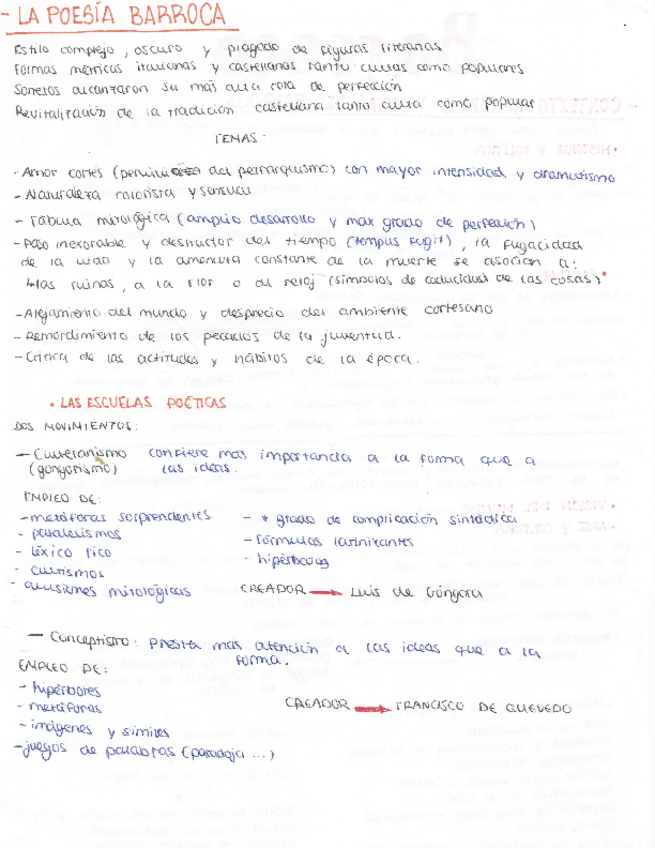 - LA POESÍA BARROCA
Estilo complejo, oscuro y plagado de figuras literarias
Formas métricas italianas y castellanas tanto cultas como populares
Sonetos alcanzaron su más alta cota de perfección
Revitalización de la tradición castellana tanto culta como popular
TEMAS:
- Amor cortés ( del petrarquismo) con mayor intensidad y dramatismo
- Naturaleza colorista y sensual
- Fábula mitológica (amplio desarrollo y max grado de perfección)
- Paso inexorable y destructor del tiempo (tempus fugit), la fugacidad
de la vida y la amenaza constante de la muerte se asocian a:
las ruinas, a la flor o al reloj (símbolos de caducidad de las cosas)
- Alejamiento del mundo y desprecio del ambiente cortesano
- Remordimiento de los pecados de la juventud.
- Crítica de las actitudes y hábitos de la época.
• LAS ESCUELAS POÉTICAS
DOS MOVIMIENTOS:
- Culteranismo confiere más importancia a la forma que a
(gongorismo) las ideas.
EMPLEO DE:
- metáforas sorprendentes - + grado de complicación sintáctica
- paralelismos - fórmulas latinizantes
- léxico rico - hipérbatos
- cultismos
- alusiones mitológicas CREADOR → Luis de Góngora
- Conceptismo: Presta más atención a las ideas que a la
forma.
EMPLEO DE:
- hipérboles
- metáforas CREADOR → FRANCISCO DE QUEVEDO
- imágenes y símiles
- juegos de palabras (paradoja ...)